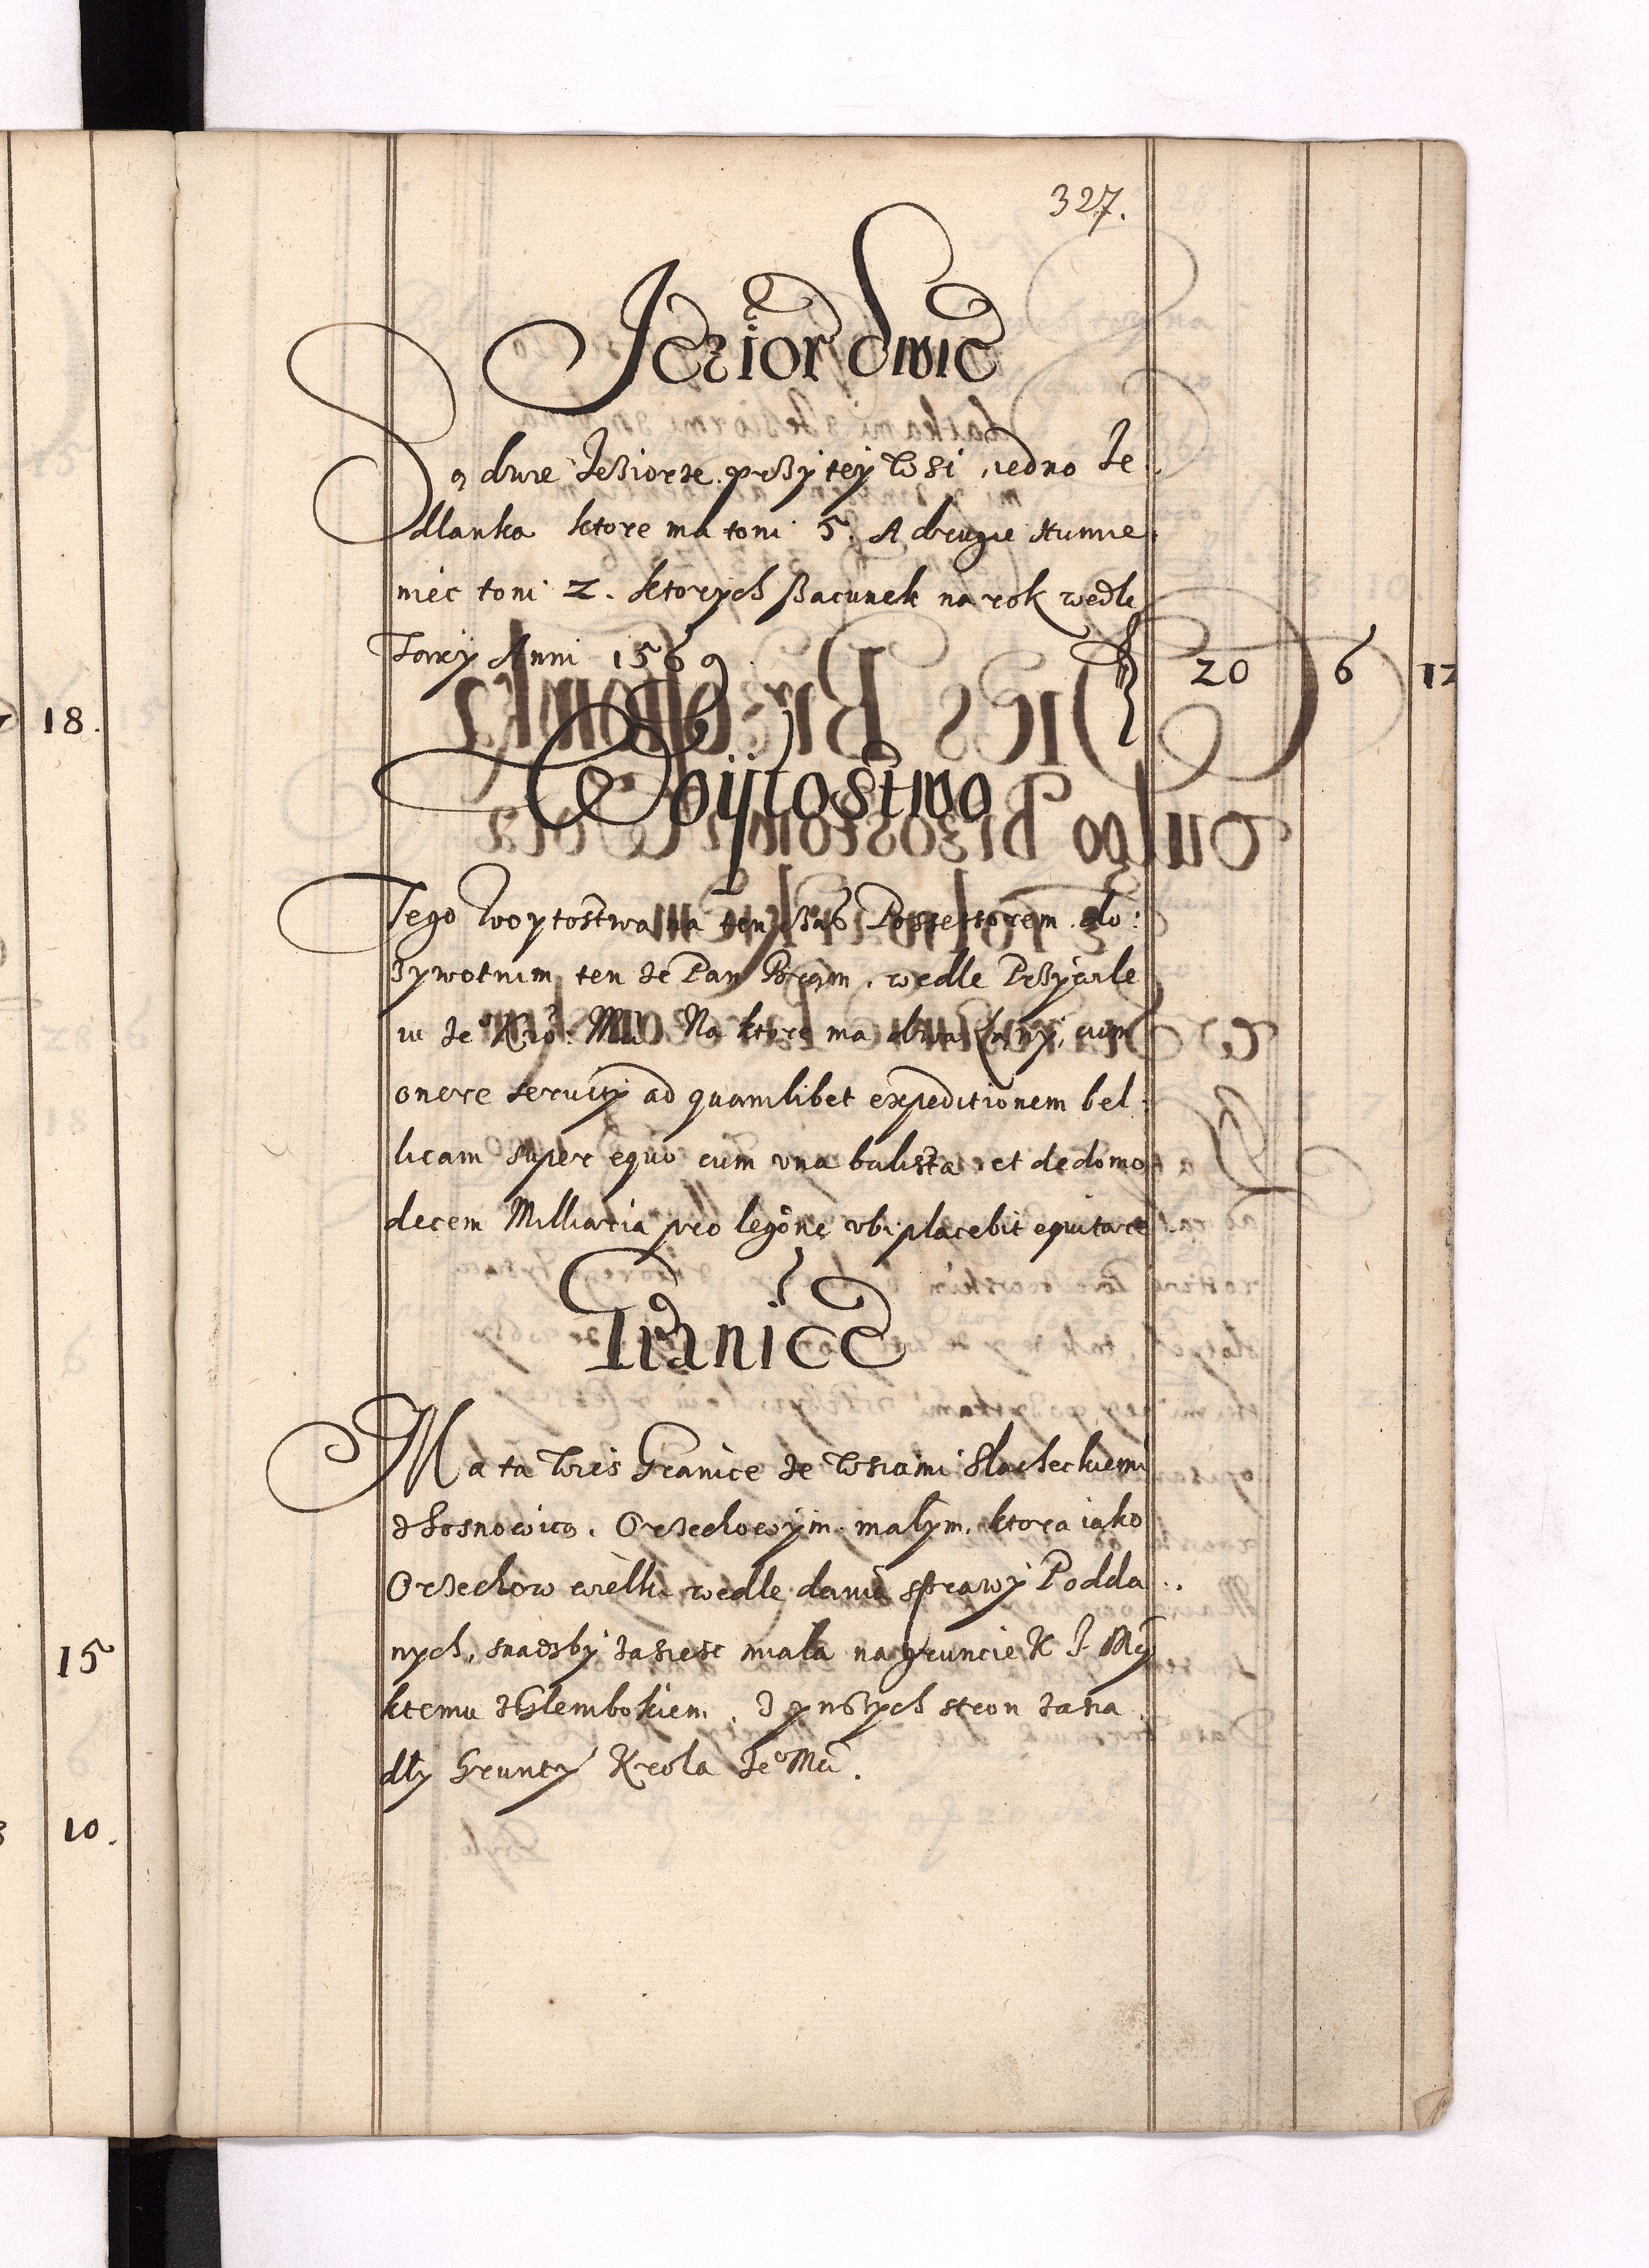 327.
Jezior dwie
Są dwie Jeziorze przy tey Wsi, iedno Je
dlanka ktore ma toni 5. A drugie Humie
niec toni 2. ktorych szacunek na rok wedle
Taxy Anni 1569. 20 6 12
Woijtostwo
Tego woytostwa na ten czas Possessorem do:
zywotnim ten ze Pan Bram. wedle Przywile
iu Je° Kro: Mci Na ktore ma dwa Łany, cum
onere seruitij ad quamlibet expeditionem bel:
licam super equo cum vna balista et de domo
decem Milliaria pro legōne vbi placebit equitare
Granice
Ma ta Wies Granice ze Wsiami Slacheckiemi
z Sosnowicą. Orzechowym malym. ktora iako
Orzechow wielki wedle dania sprawy Podda
nych, snadzby zasiesc miala na gruncie K J Mcy
ktemu z Glembokiem. Z ynszych stron zasia
dly Grunty Krola Je° Mci.
18.
15
10.